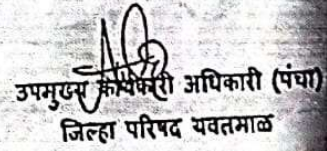 उपमुख्य कार्यकारी अधिकारी (पंचा)
जिल्हा परिषद यवतमाळ